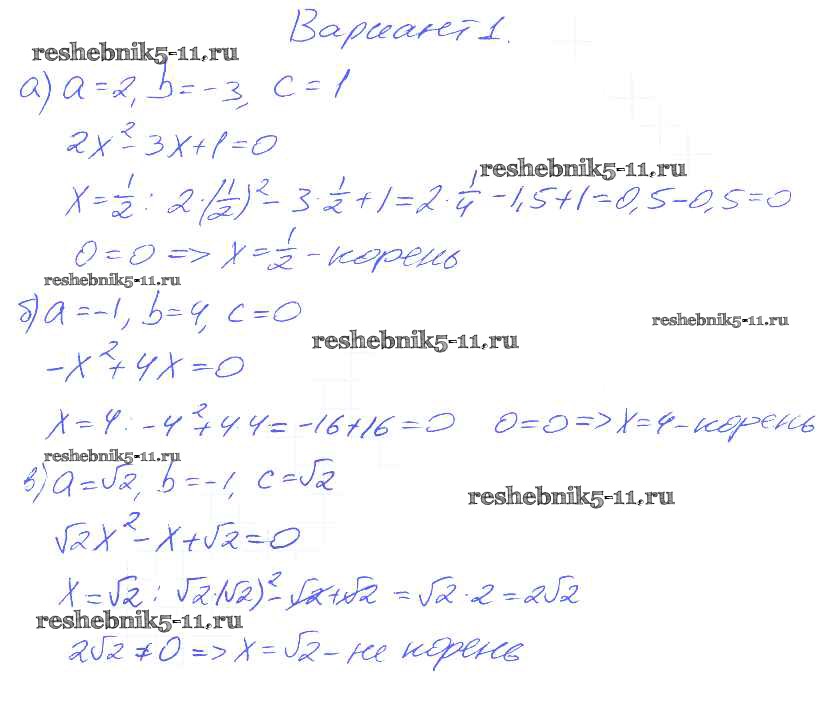 Вариант 1.
reshebnik5-11.ru
а) a=2, b=-3, c=1
2x²-3x+1=0
reshebnik5-11.ru
x=1/2 : 2·(1/2)²-3·1/2+1=2·1/4-1,5+1=0,5-0,5=0
0=0 => x=1/2 - корень
reshebnik5-11.ru
б) a=-1, b=4, c=0
reshebnik5-11.ru
reshebnik5-11.ru
-x²+4x=0
x=4: -4²+4·4=-16+16=0 0=0=>x=4-корень
reshebnik5-11.ru
в) a=√2, b=-1, c=√2
reshebnik5-11.ru
√2x²-x+√2=0
x=√2 : √2·(√2)²-√2+√2 = √2·2=2√2
reshebnik5-11.ru
2√2≠0=>x=√2-не корень